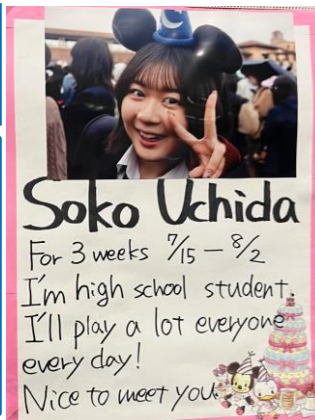 Soko Uchida
For 3 weeks 7/15 – 8/2
I'm high school student.
I'll play a lot everyone
every day!
Nice to meet you.